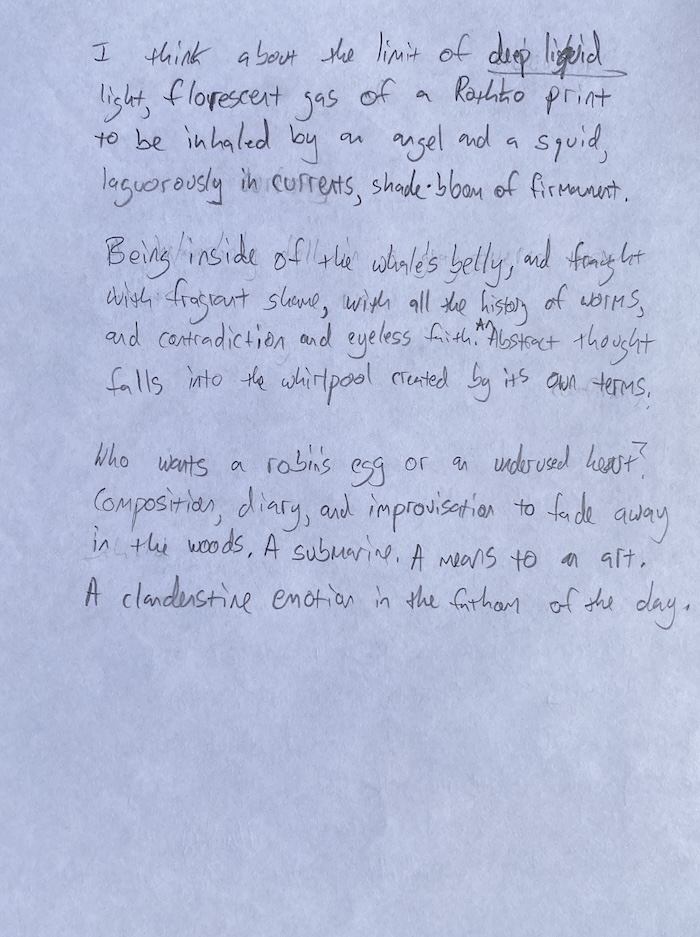 I think about the limit of deep liquid
light, florescent gas of a Rothko print
to be inhaled by an angel and a squid,
laguorously in currents, shade-bloom of firmament.
Being inside of the whale's belly, and fraight
with fragrant shame, with all the history of worms,
and contradiction and eyeless faith. An Abstract thought
falls into the whirlpool created by its own terms.
Who wants a robin's egg or an underused heart?
Composition, diary, and improvisation to fade away
in the woods. A submarine. A means to an art.
A clandenstine emotion in the fathom of the day.